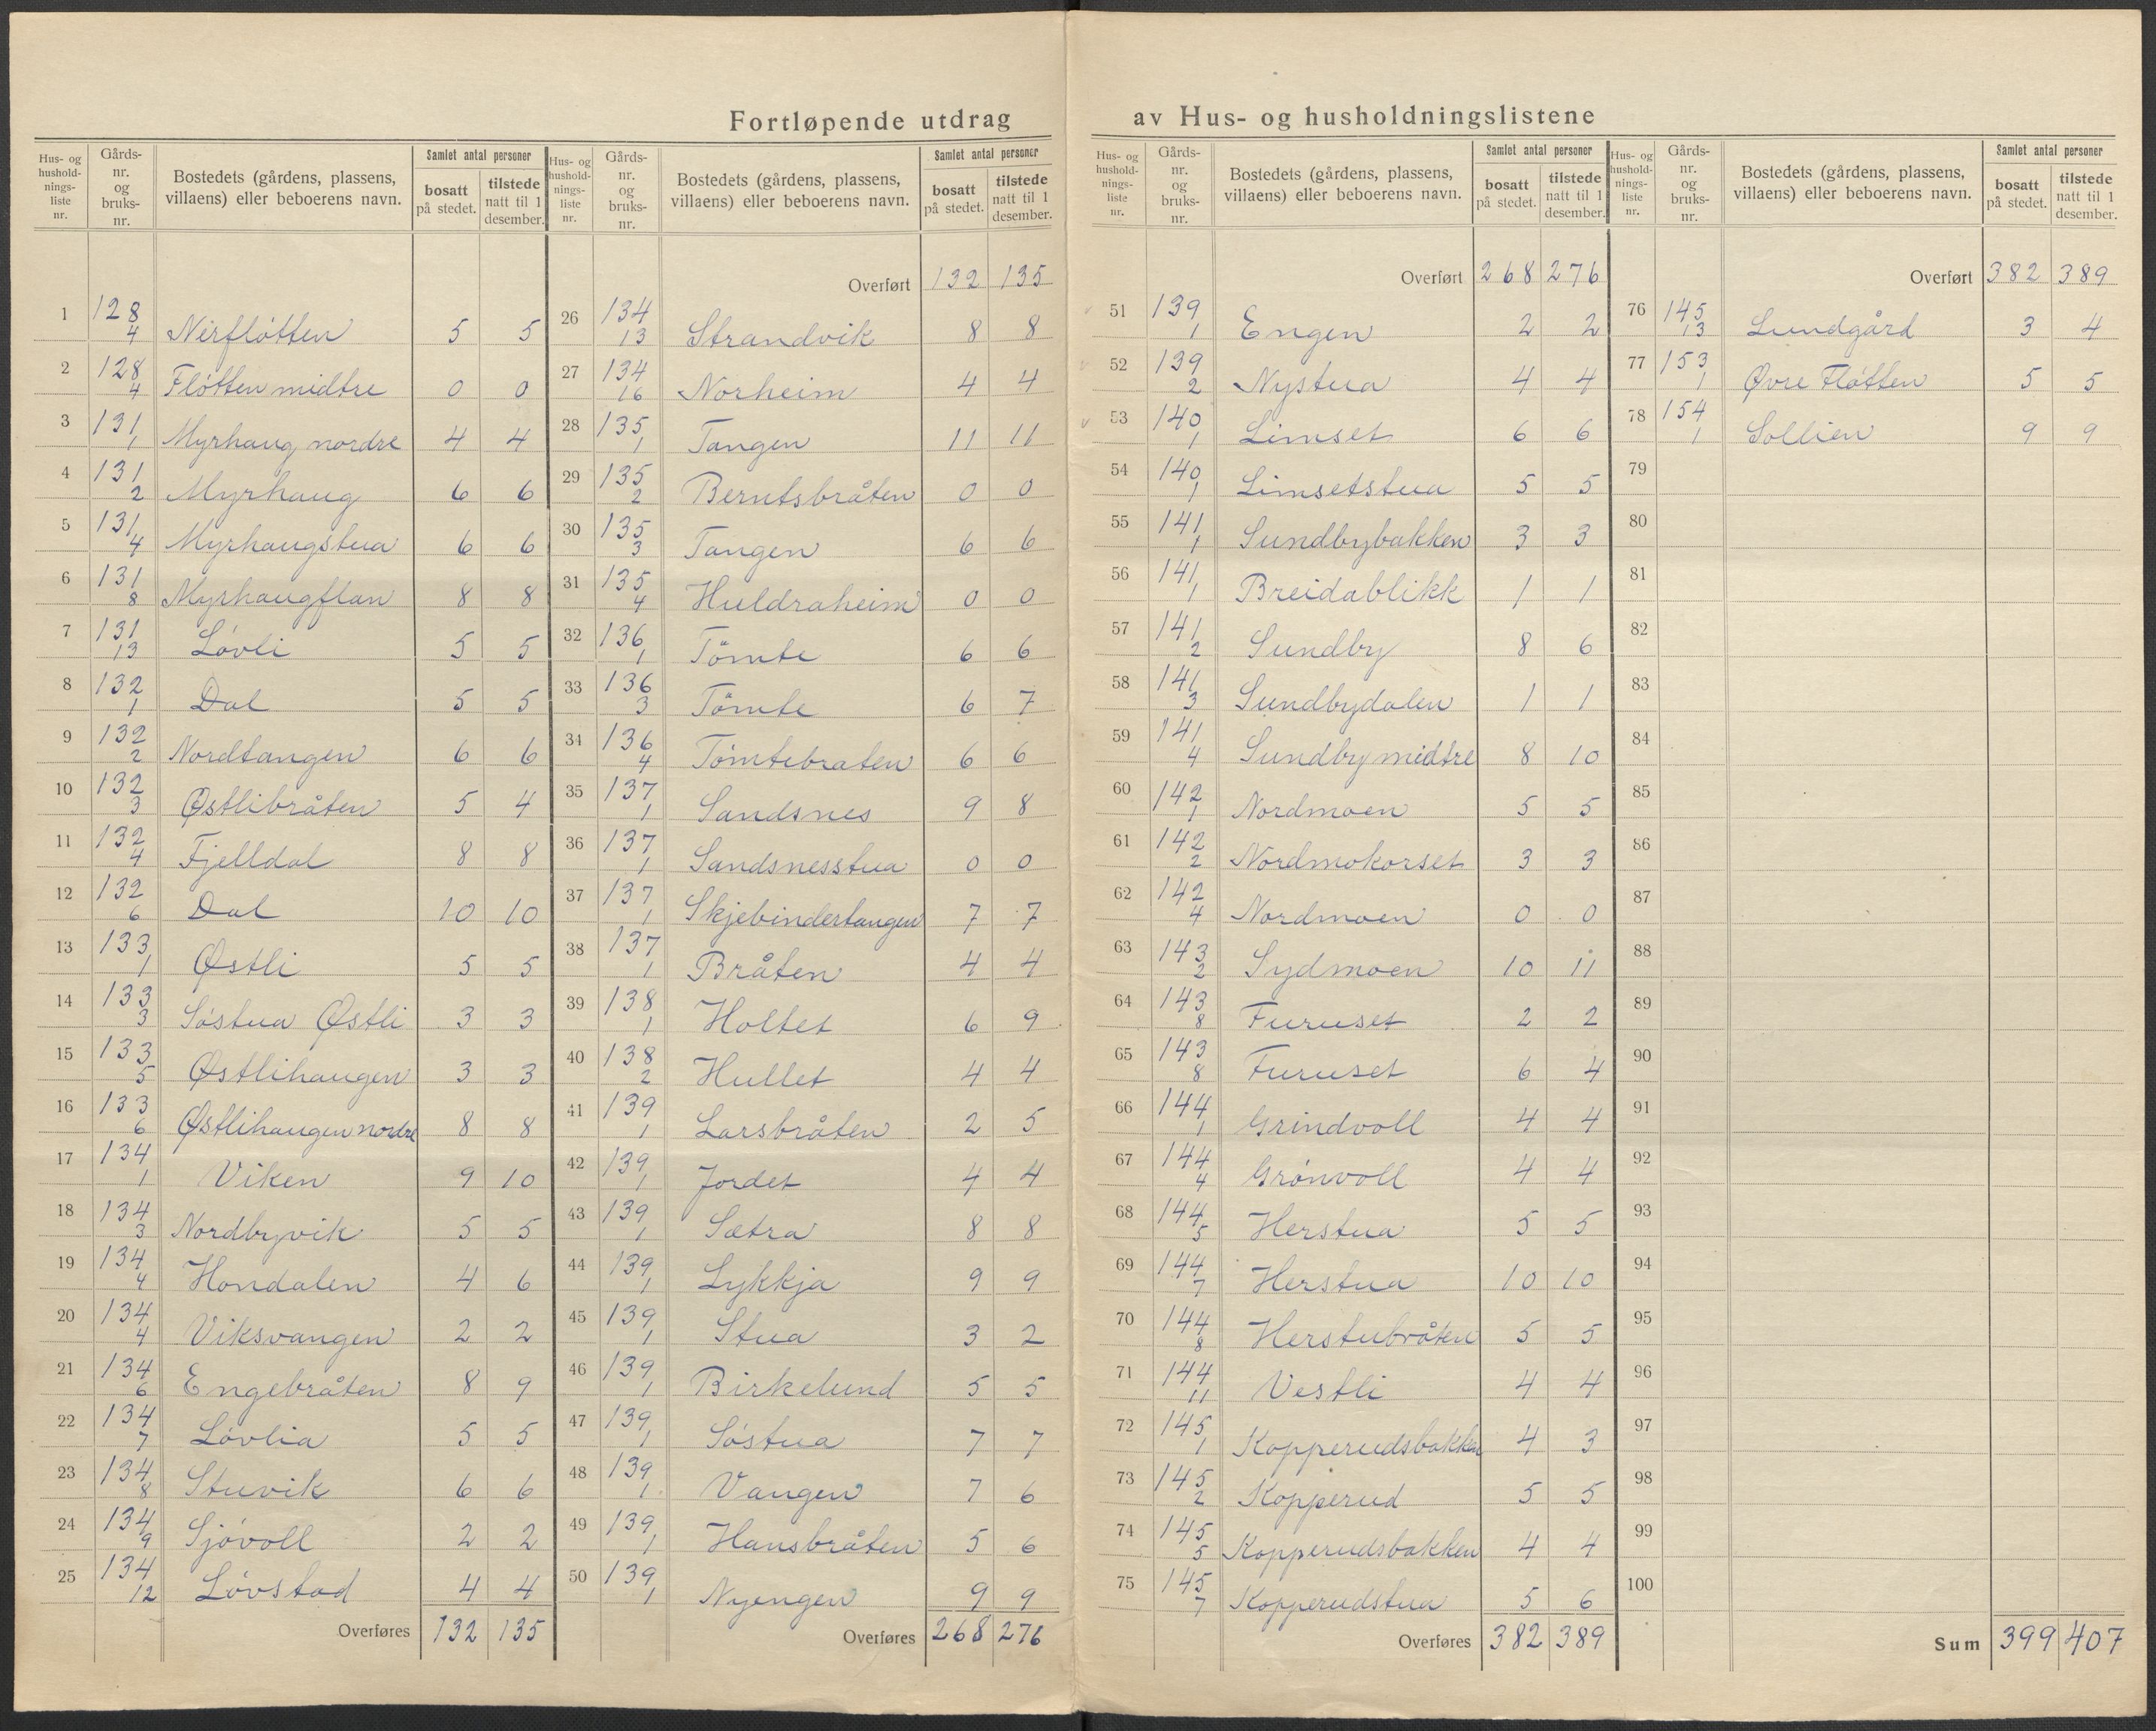 Fortløpende utdrag av Hus- og husholdningslistene
Hus- og husholdnings-liste nr. | Gårds-nr. og bruks-nr. | Bostedets (gårdens, plassens, villaens) eller beboerens navn. | Samlet antal personer | bosatt på stedet. | tilstede natt til 1 desember.
1 128/4 Nerfløtten 5 5
2 128/4 Fløtten midtre 0 0
3 131/1 Myrhaug nordre 4 4
4 131/2 Myrhaug 6 6
5 131/4 Myrhaugstua 6 6
6 131/8 Myrhaugflan 8 8
7 131/13 Løvli 5 5
8 132/1 Dal 5 5
9 132/2 Nordtangen 6 6
10 132/3 Østlibråten 5 4
11 132/4 Fjelldal 8 8
12 132/6 Dal 10 10
13 133/1 Østli 5 5
14 133/3 Søstua Østli 3 3
15 133/5 Østlihaugen 3 3
16 133/6 Østlihaugen nordre 8 8
17 134/1 Viken 9 10
18 134/3 Nordbyvik 5 5
19 134/4 Hondalen 4 6
20 134/4 Viksvangen 2 2
21 134/6 Engebråten 8 9
22 134/7 Løvlia 5 5
23 134/8 Stuvik 6 6
24 134/9 Sjøvoll 2 2
25 134/12 Løvstad 4 4
Overføres 132 135
Hus- og husholdnings-liste nr. | Gårds-nr. og bruks-nr. | Bostedets (gårdens, plassens, villaens) eller beboerens navn. | Samlet antal personer | bosatt på stedet. | tilstede natt til 1 desember.
Overført 132 135
26 134/13 Strandvik 8 8
27 134/16 Norheim 4 4
28 135/1 Tangen 11 11
29 135/2 Berntsbråten 0 0
30 135/3 Tangen 6 6
31 135/4 Huldraheim 0 0
32 136/1 Tömte 6 6
33 136/3 Tömte 6 7
34 136/4 Tømtebraten 6 6
35 137/1 Sandsnes 9 8
36 137/1 Sandsnesstua 0 0
37 137/1 Skjebindertangen 7 7
38 137/1 Bråten 4 4
39 138/1 Holtet 6 9
40 138/2 Hullet 4 4
41 139/1 Larsbråten 2 5
42 139/1 Jordet 4 4
43 139/1 Sætra 8 8
44 139/1 Lykkja 9 9
45 139/1 Stua 3 2
46 139/1 Birkelund 5 5
47 139/1 Søstua 7 7
48 139/1 Vangen 7 6
49 139/1 Hansbråten 5 6
50 139/1 Nyengen 9 9
Overføres 268 276
Hus- og husholdnings-liste nr. | Gårds-nr. og bruks-nr. | Bostedets (gårdens, plassens, villaens) eller beboerens navn. | Samlet antal personer | bosatt på stedet. | tilstede natt til 1 desember.
Overført 268 276
51 139/1 Engen 2 2
52 139/2 Nystua 4 4
53 140/1 Limset 6 6
54 140/1 Limsetstua 5 5
55 141/1 Sundbybakken 3 3
56 141/1 Breidablikk 1 1
57 141/2 Sundby 8 6
58 141/3 Sundbydalen 1 1
59 141/4 Sundby midtre 8 10
60 142/1 Nordmoen 5 5
61 142/2 Nordmokorset 3 3
62 142/4 Nordmoen 0 0
63 143/2 Sydmoen 10 11
64 143/8 Furuset 2 2
65 143/8 Furuset 6 4
66 144/1 Grindvoll 4 4
67 144/4 Grønvoll 4 4
68 144/5 Herstua 5 5
69 144/7 Herstua 10 10
70 144/8 Herstubråten 5 5
71 144/11 Vestli 4 4
72 145/1 Kopperudsbakken 4 3
73 145/2 Kopperud 5 5
74 145/5 Kopperudsbakken 4 4
75 145/7 Kopperudstua 5 6
Overføres 382 389
Hus- og husholdnings-liste nr. | Gårds-nr. og bruks-nr. | Bostedets (gårdens, plassens, villaens) eller beboerens navn. | Samlet antal personer | bosatt på stedet. | tilstede natt til 1 desember.
Overført 382 389
76 145/13 Lundgård 3 4
77 153/1 Øvre Fløtten 5 5
78 154/1 Sollien 9 9
79
80
81
82
83
84
85
86
87
88
89
90
91
92
93
94
95
96
97
98
99
100
Sum 399 407